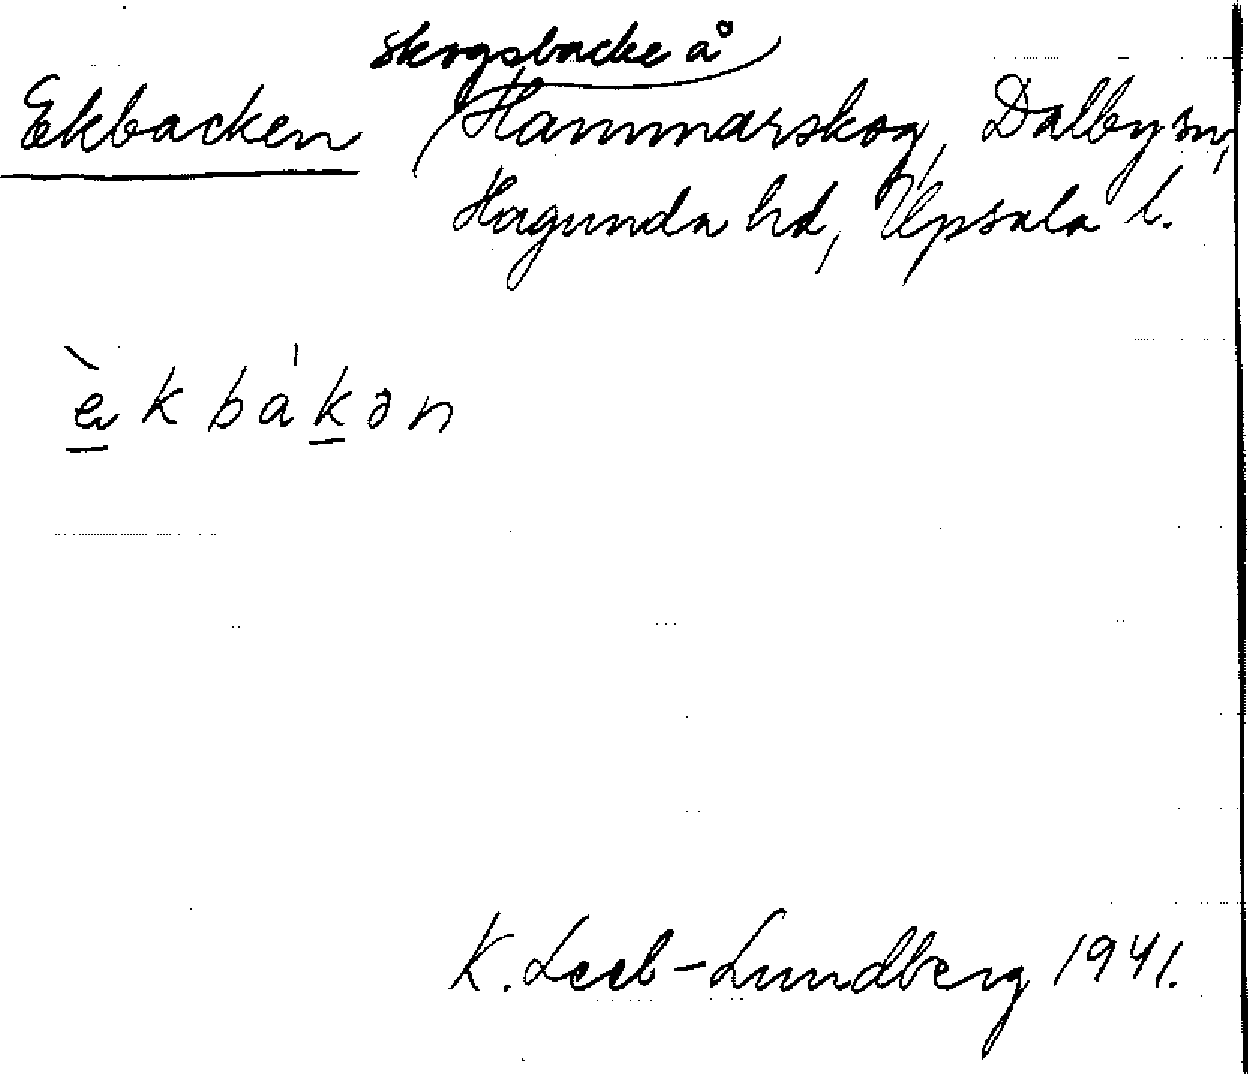 skogsbacke å
Ekbacken Hammarskog, Dalby sn,
Hagunda hd, Upsala l.
èkbákən
K. Leeb-Lundberg 1941.